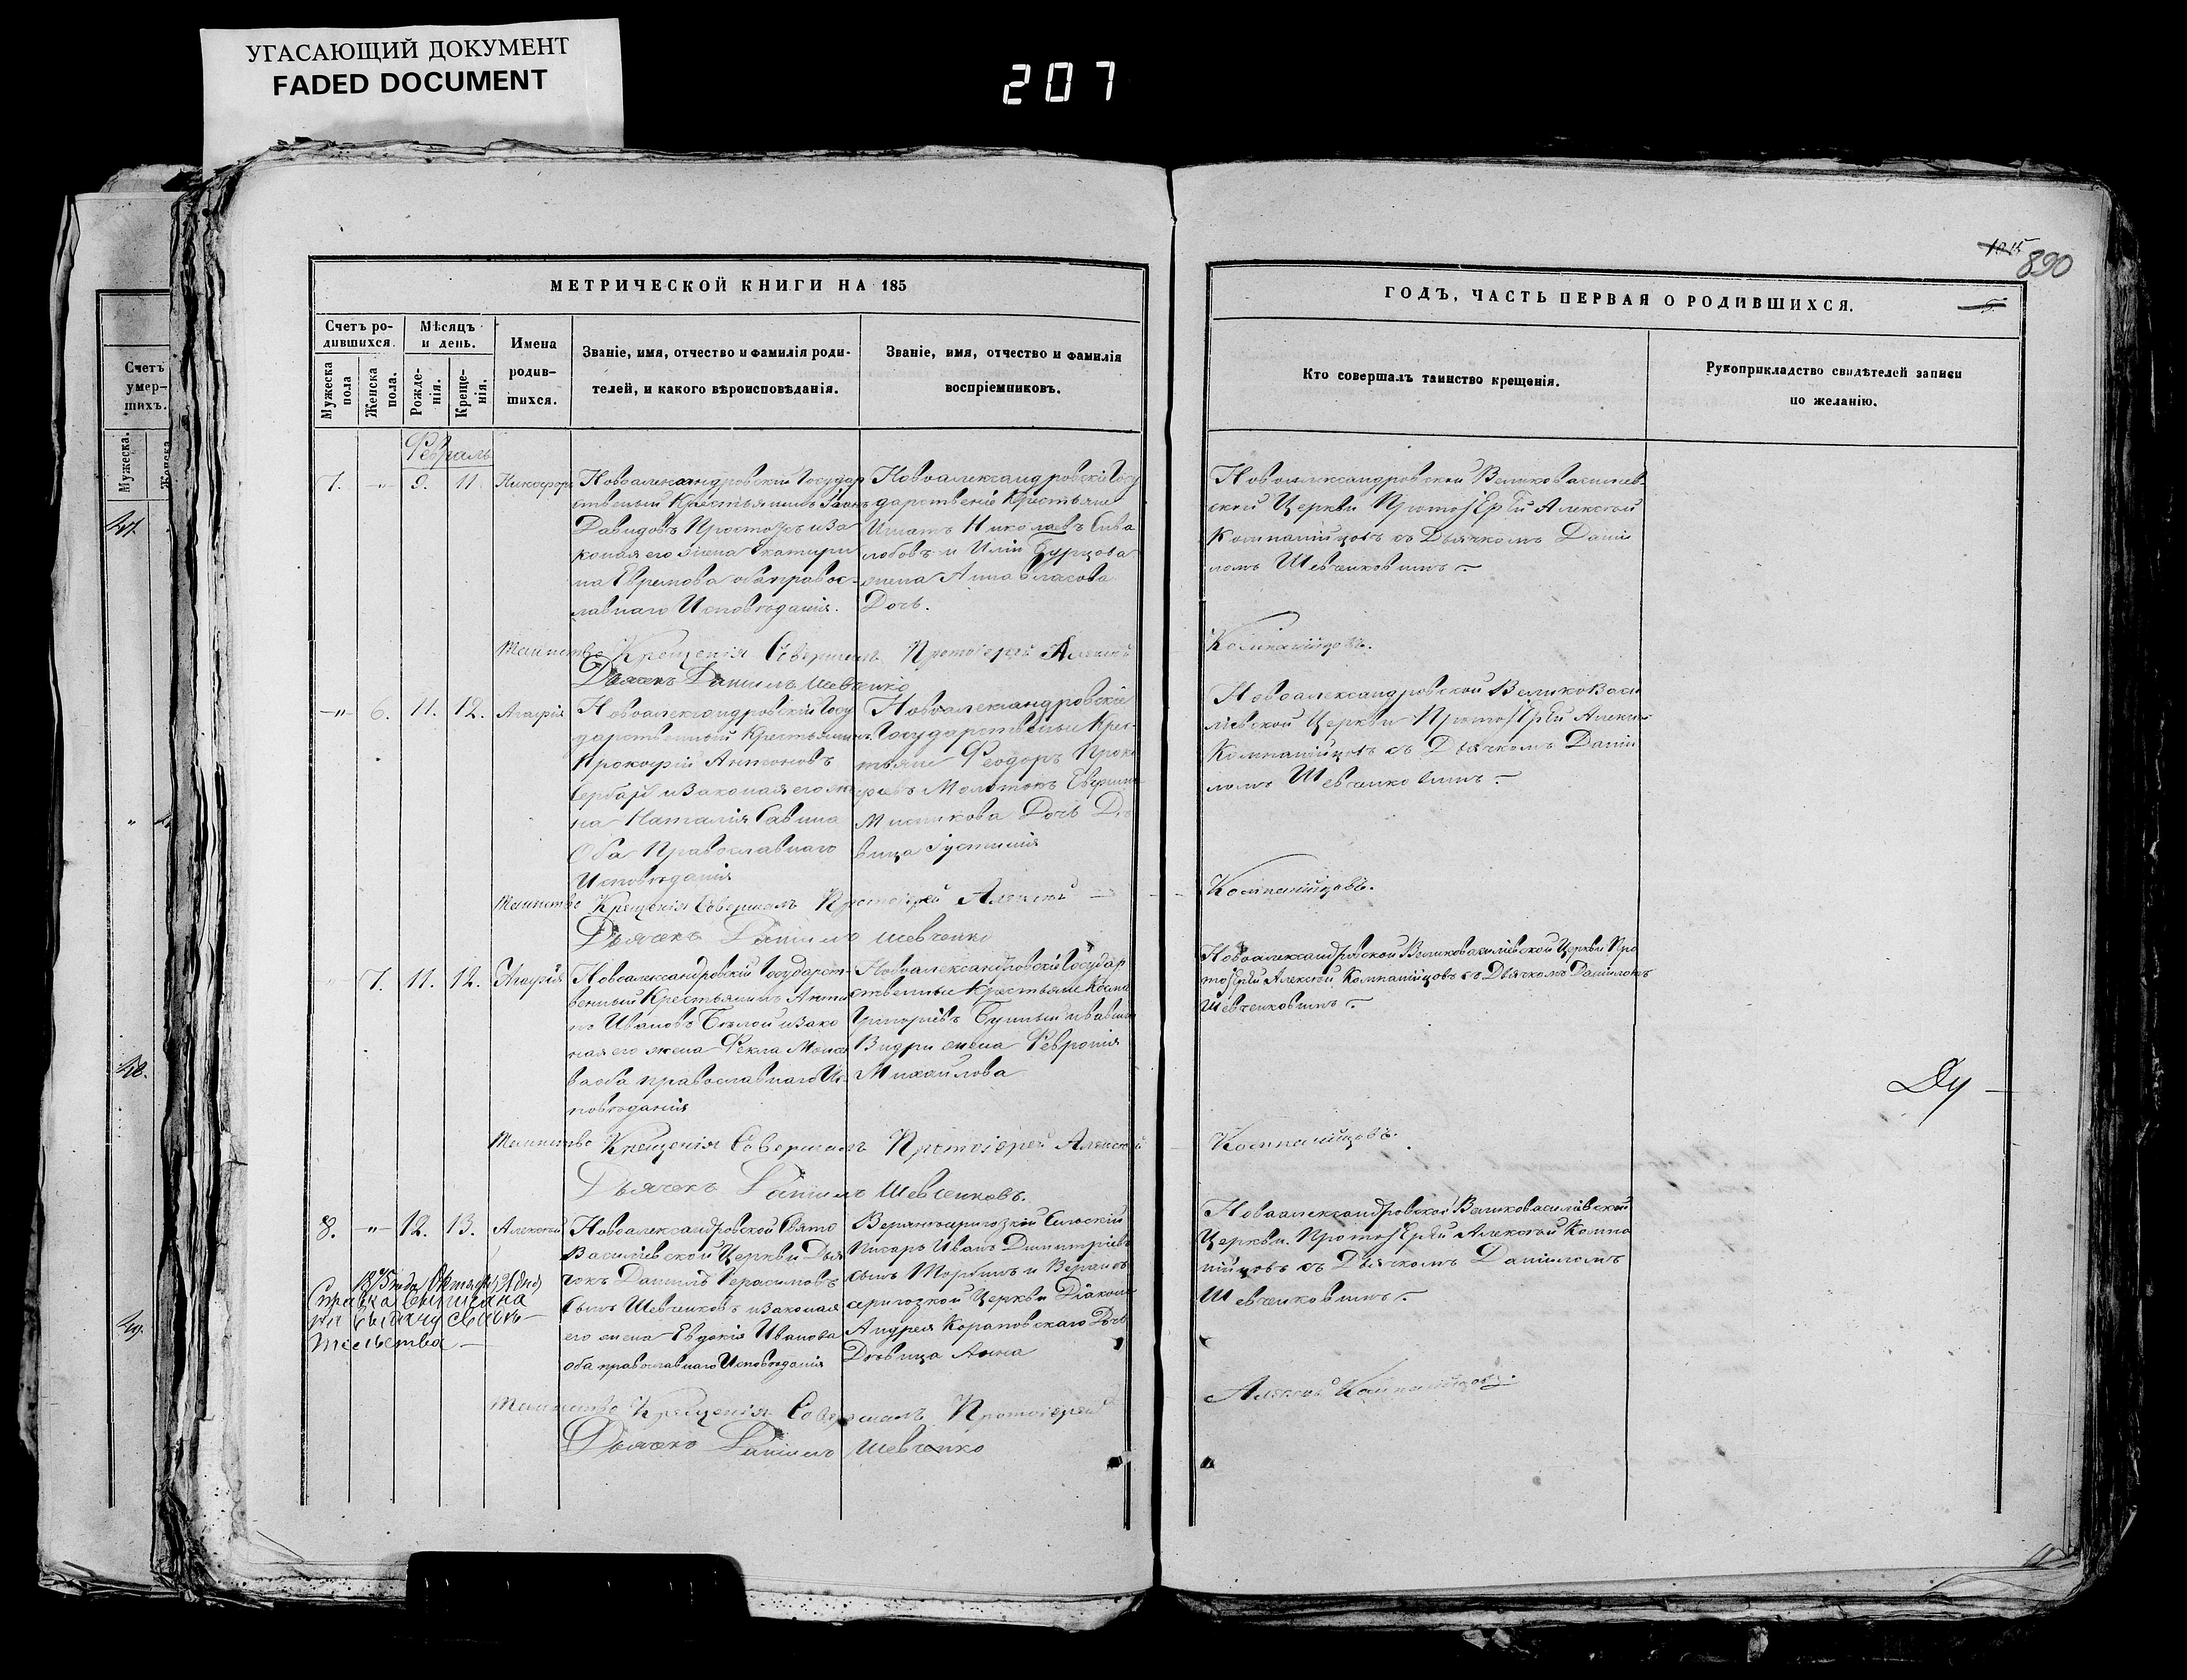 УГАСАЮЩИЙ ДОКУМЕНТ
FADED DOCUMENT
207
890
МЕТРИЧЕСКОЙ КНИГИ НА 185
ГОДЪ, ЧАСТЬ ПЕРВАЯ О РОДИВШИХСЯ.
Счетъ ро-
дившихся.
Мѣсяцъ
и день.
Мужеска
пола
Женска
пола.
Рожде-
нія.
Креще-
нія.
Имена
родив-
шихся.
Званіе, имя, отчество и фамилія роди-
телей, и какого вѣроисповѣданія.
Званіе, имя, отчество и фамилія
воспріемниковъ.
Кто совершалъ таинство крещенія.
Рукоприкладство свидѣтелей записи
по желанію.
Счетъ
умер-
шихъ.
Мужеска.
Женска
47.
48.
49.
Февраль
7. -"- 9. 11. Никифоръ
Новоалександровскій Государ
ственый Крестьянинъ
Давидовъ иза
коная его жена Екатири
на Евремова обаправос-
лавнаго Исповѣданія.
Новоалександровскіе Госу
дарственіе Крестьяне
Игнатъ Николаевъ Сива
лобовъ и Иліи Бурцова
жена Анна Власова
Дочь.
Новоалександровской Великовасилиев-
ской Церкви ПротоІЕрѣй Алексѣй
Компанійцовъ съ Дьячкомъ Данiи
ломъ Шевченковимъ
Таинство Крещенія Совершалъ Протоіерей Алексѣй
Компанійцовъ.
Дьячекъ Даниилъ Шевченко
-"- 6. 11. 12. Агафія
Новоалександровскій Госу
дарственный Крестьянинъ
Прокофій Антоновъ
изаконая его же
на Наталія Савина
Оба Православнаго
Исповѣданія
Новоалександровскіе
Государственые Крес-
тьяне Феодоръ Проко
фіевъ Молотокъ
Дочь Дѣ
вица Іустинія
Новоалександровской ВеликоВаси
ліевской Церкви ПротоІЕрѣй Алексѣй
Компанійцовъ съ Дьячкомъ Данiи
ломъ Шевченковимъ
Таинство Крещенія Совершалъ Протоіерей Алексѣй
Компанійцовъ.
Дьячекъ Даниилъ Шевченко
7. 11. 12. Агафія
Новоалександровскій Государст-
венный Крестьянинъ Анти
пъ Ивановъ Бѣлой изако
ная его жена Фекла Моисе
ва оба православнаго Ис-
повѣданія
Новоалександровскіе Государ
ственные Крестьяне Косма
Григоріевъ
жена Февронія
Михайлова
Новоалександровской Великовасиліевской Церкви Про
тоІЕрѣй Алексѣй Компанійцовъ съ Дьячкомъ Даниломъ
Шевченковимъ
Таинство Крещенія Совершалъ Протоіерей Алексѣй
Компанійцовъ.
Дьячекъ Даниилъ Шевченковъ.
8. -"- 12. 13. Алексѣй
Новоалександровской Свято
Василіевской Церкви Дья
чокъ Даниилъ Герасимовъ
Сынъ Шевченковъ изаконая
его жена Евдокія Иванова
оба православнаго Исповѣданія
Сельскій
Писарь Иванъ Димитріевъ
сынъ
Церкви Діакона
Андрея Корановскаго Дочь
Дѣвица Анна
Новоалександровской Великовасиліевской
Церкви ПротоІЕрѣй Алексѣй Компа
нійцовъ съ Дьячкомъ Даниломъ
Шевченковимъ
1875 года Октября 31 дня
Справка
на выдачу свидѣ-
тельства
Таинство Крещенія Совершалъ Протоіерей
Алексѣй Компанійцовъ.
Дьячекъ Даниилъ Шевченко